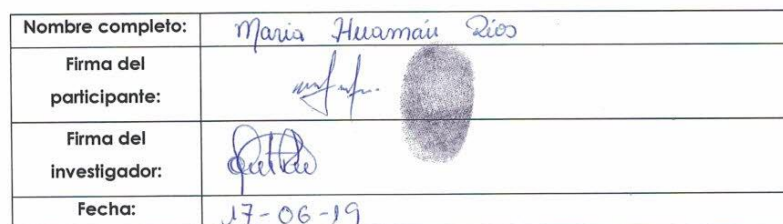 Nombre completo: Maria Huamán Rios
Firma del
participante:
Firma del
investigador:
Fecha: 17-06-19